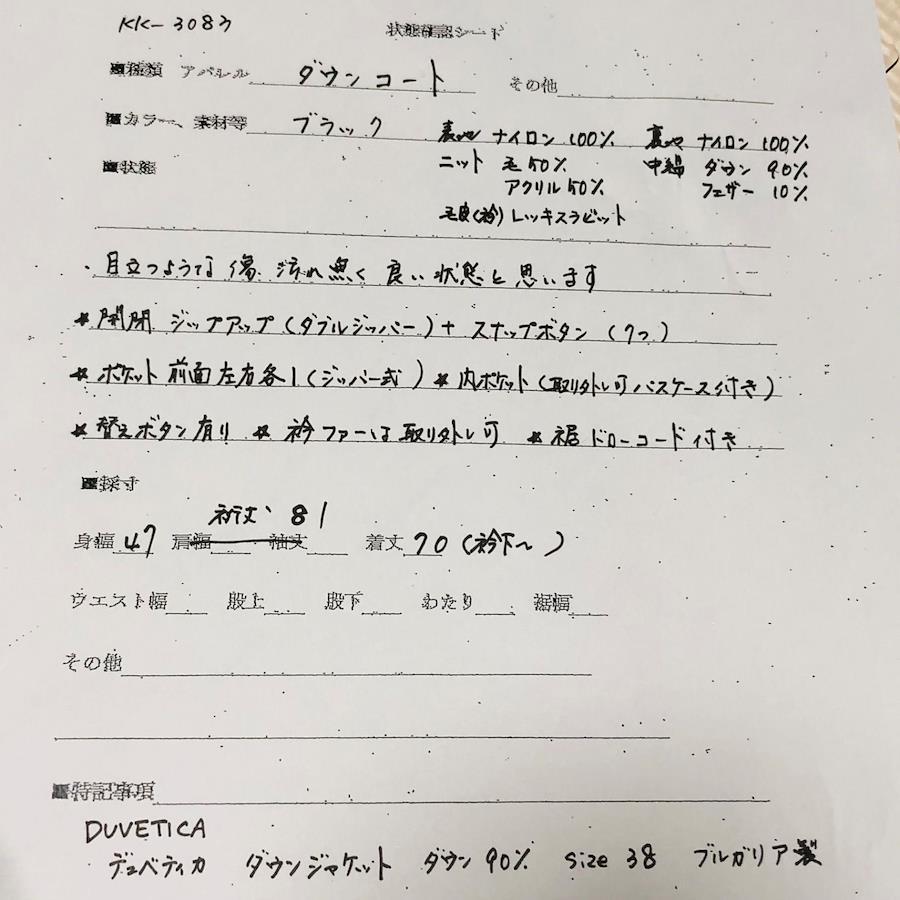 KK-3083
状態確認シート
■種類 アパレル ダウンコート その他
■カラー、素材等 ブラック 表地 ナイロン 100% 裏地 ナイロン 100%
■状態 ニット 毛 50% 中綿 ダウン 90%
アクリル 50% フェザー 10%
毛皮(衿) レッキスラビット
・目立つような傷、汚れ無く良い状態と思います
* 開閉 ジップアップ(ダブルジッパー)+ スナップボタン(7つ)
* ポケット 前面左右各1(ジッパー式) * 内ポケット(取り外し可パスケース付き)
* 替えボタン有り * 衿ファーは取り外し可 * 裾ドローコード付き
■採寸
裄丈 81
身幅 47 肩幅 袖丈 着丈 70 (衿下〜)
ウエスト幅 股上 股下 わたり 裾幅
その他
■特記事項
DUVETICA
デュベティカ ダウンジャケット ダウン 90% size 38 ブルガリア製